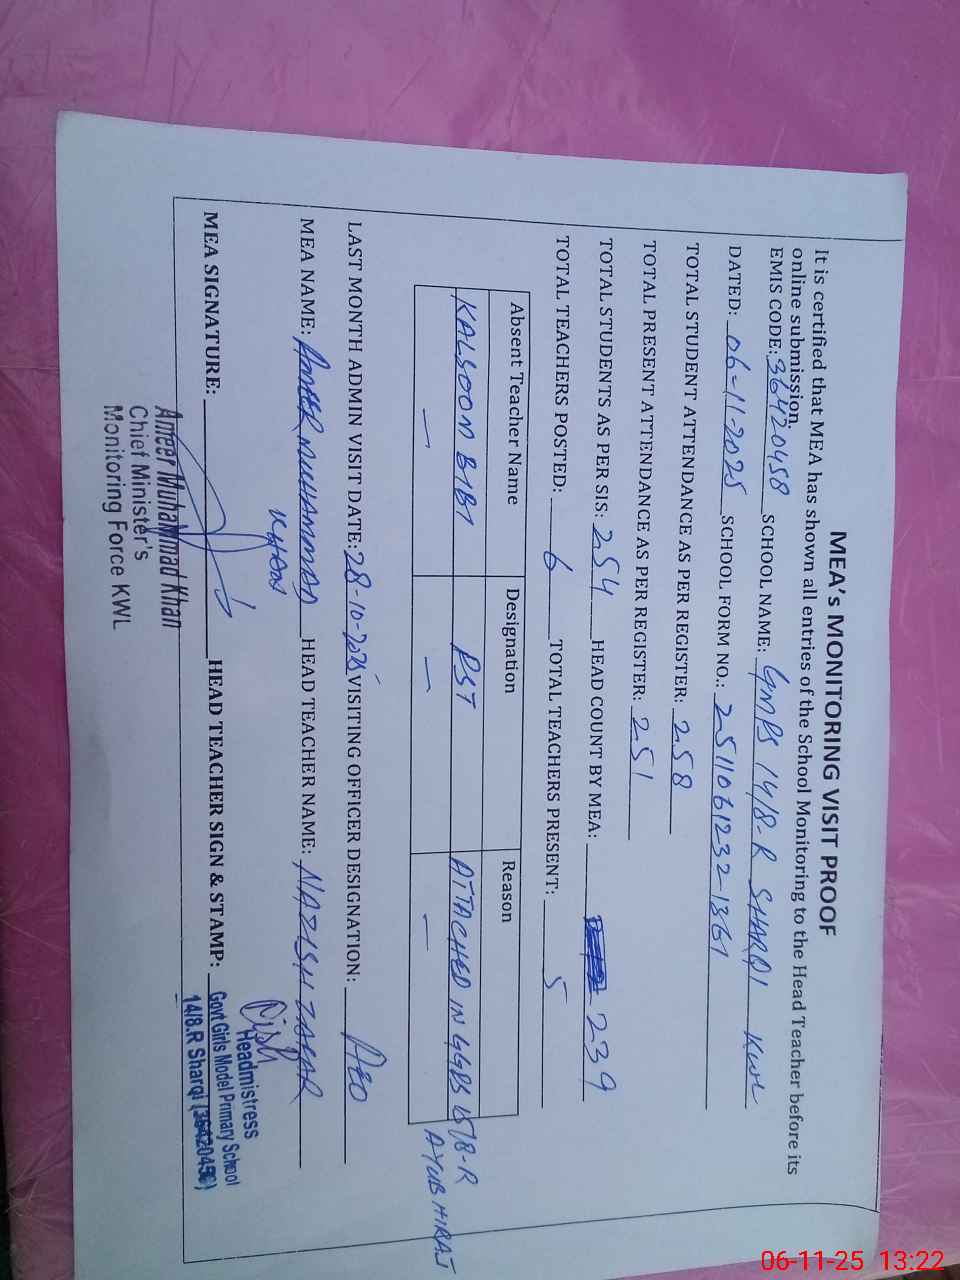 MEA's MONITORING VISIT PROOF
It is certified that MEA has shown all entries of the School Monitoring to the Head Teacher before its
online submission.
EMIS CODE: 36420458 SCHOOL NAME: GMPS 14/8-R SHARQI KWL
DATED: 06-11-2025 SCHOOL FORM NO.: 2511061232-1361
TOTAL STUDENT ATTENDANCE AS PER REGISTER: 258
TOTAL PRESENT ATTENDANCE AS PER REGISTER: 251
TOTAL STUDENTS AS PER SIS: 254 HEAD COUNT BY MEA: 239
TOTAL TEACHERS POSTED: 6 TOTAL TEACHERS PRESENT: 5
Absent Teacher Name Designation Reason
KALSOOM BIBI PST ATTACHED IN GGPS 15/8-R
AYUB HIRAJ
— — —
LAST MONTH ADMIN VISIT DATE: 28-10-2025 VISITING OFFICER DESIGNATION: AEO
MEA NAME: AMEER MUHAMMAD HEAD TEACHER NAME: NAZISH ZAFAR
KHAN
MEA SIGNATURE: HEAD TEACHER SIGN & STAMP:
Headmistress
Govt Girls Model Primary School
14/8.R Sharqi (36420458)
Ameer Muhammad Khan
Chief Minister's
Monitoring Force KWL
06-11-25 13:22